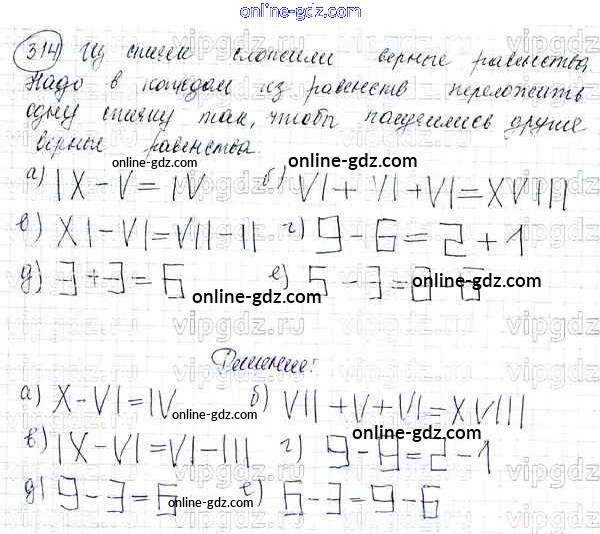 online-gdz.com
314) Из спичек сложили верные равенства.
Надо в каждом из равенств переложить
одну спичку так, чтобы получились другие
верные равенства.
online-gdz.com
online-gdz.com
а) IX - V = IV б) VI + VI + VI = XVIII
online-gdz.com
в) XI - VI = VII - II г) 9 - 6 = 2 + 1
д) 3 + 3 = 6 е) 5 - 3 = 8 - 6
online-gdz.com
Решение:
а) X - VI = IV б) VII + V + VI = XVIII
online-gdz.com
online-gdz.com
в) IX - VI = VI - III г) 9 - 9 = 2 - 1
online-gdz.com
д) 9 - 3 = 6 е) 6 - 3 = 9 - 6
online-gdz.com
online-gdz.com